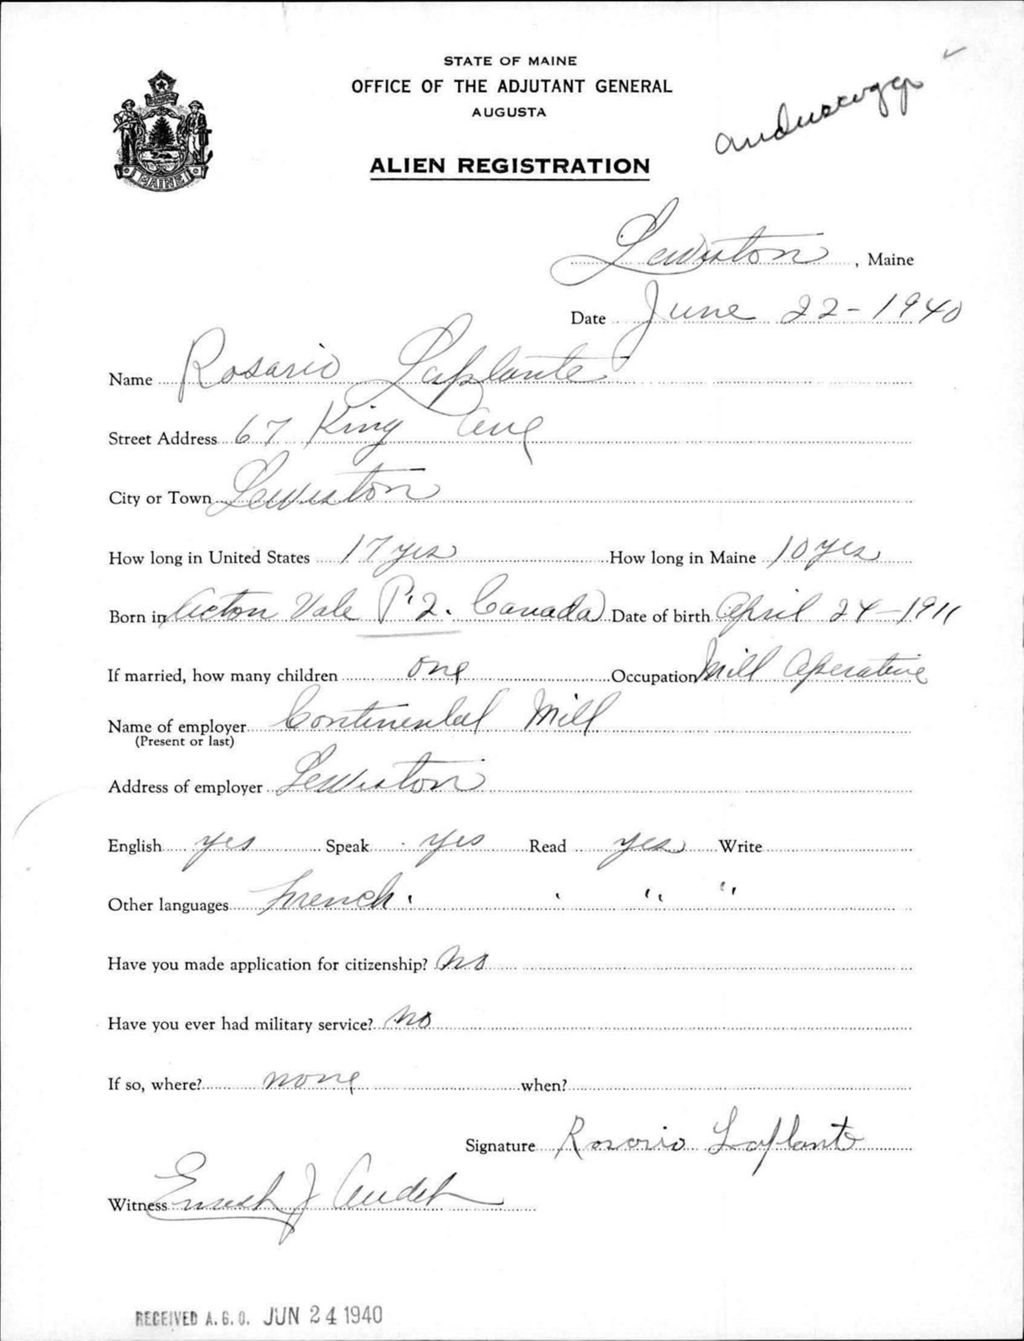 STATE OF MAINE
OFFICE OF THE ADJUTANT GENERAL
AUGUSTA
ALIEN REGISTRATION
Androscoggin
MAINE
Lewiston, Maine
Date June 22-1940
Name Rosario Laplante
Street Address 67 King Ave
City or Town Lewiston
How long in United States 17 yrs How long in Maine 10 yrs
Born in Acton Vale P.Q. Canada Date of birth April 24-1911
If married, how many children one Occupation Mill Operative
Name of employer Continental Mill
(Present or last)
Address of employer Lewiston
English yes Speak yes Read yes Write
Other languages French. ' " "
Have you made application for citizenship? No
Have you ever had military service? No
If so, where? none when?
Signature Rosario Laplante
Witness J Audet
RECEIVED A.G.O. JUN 24 1940